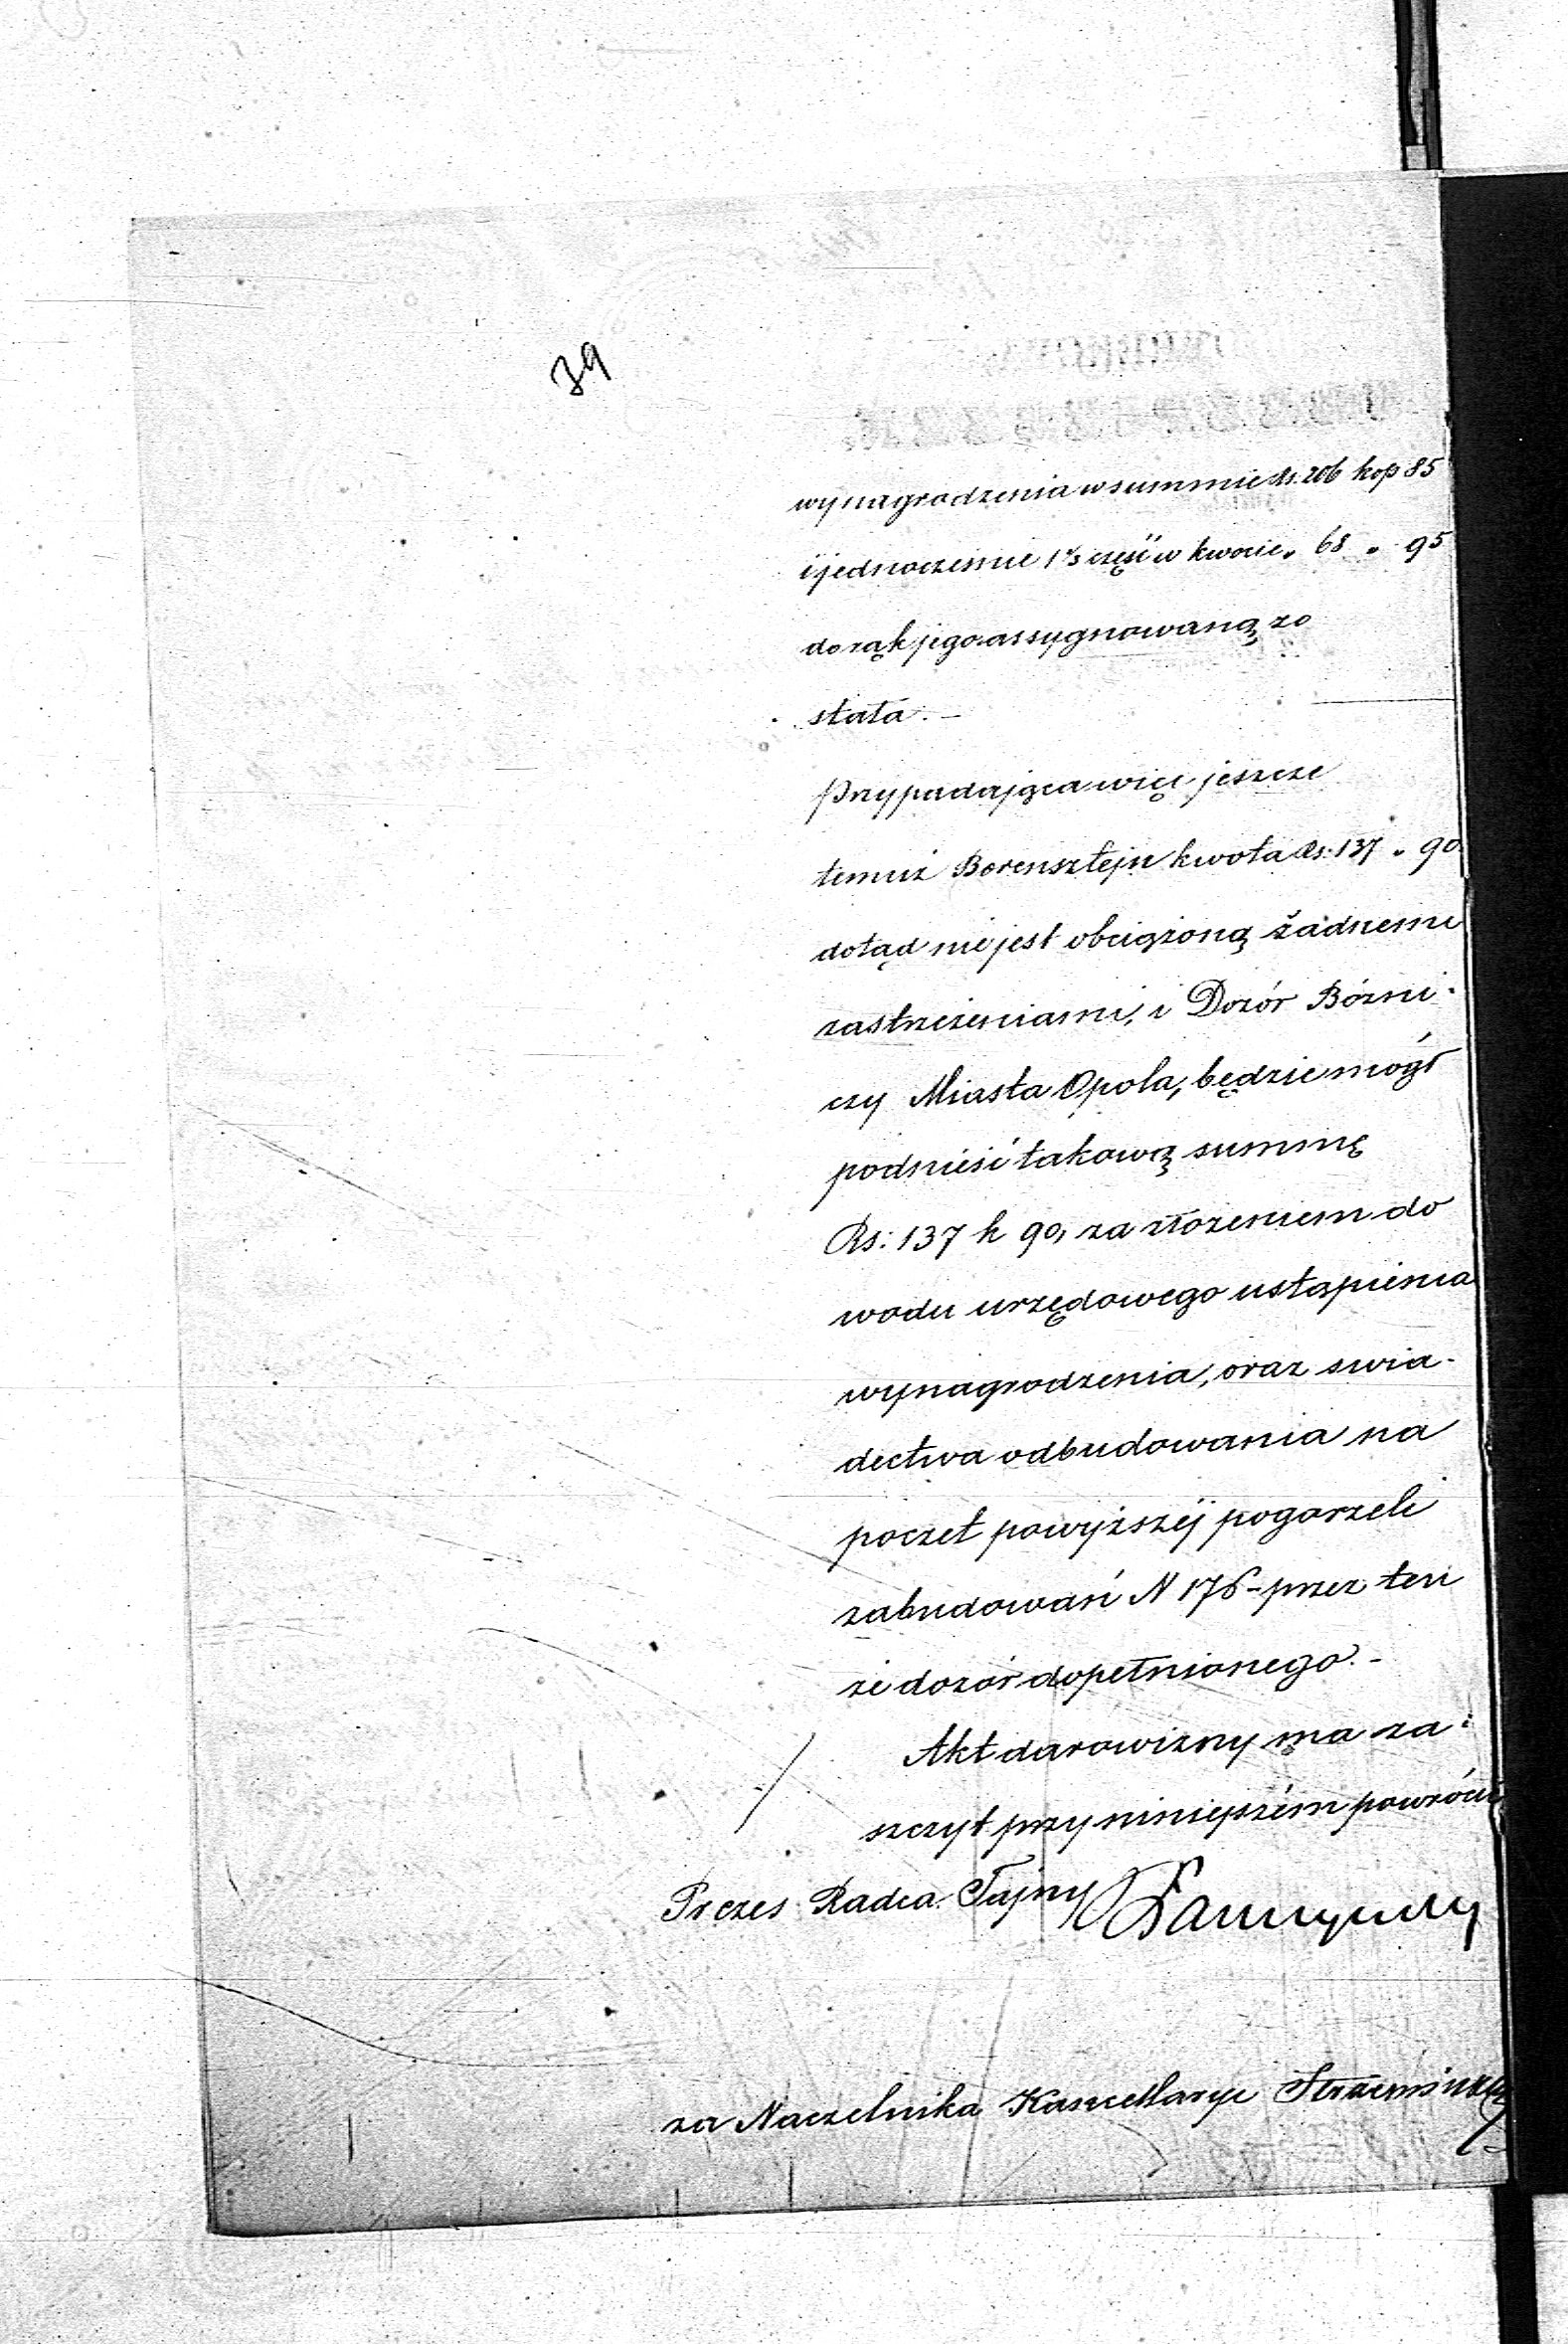 39
wynagrodzenia w summie Rs. 206 kop 85
i jednocześnie 1/3 część w kwocie „ 68 „ 95
do rąk jego assygnowaną zo
stała. —
Przypadająca więc jeszcze
temuż Borensztejn kwota Rs. 137 „ 90
dotąd nie jest obciążoną żadnemi
zastrzeżeniami, i Dozór Bóżni-
czy Miasta Opola, będzie mógł
podnieść takową summę
Rs: 137 k 90, za złożeniem do
wodu urzędowego ustąpienia
wynagrodzenia, oraz swia-
dectwa odbudowania na
poczet powyższéj pogorzeli
zabudowań N 176 - przez ten
że dozór dopełnionego. -
Akt darowizny ma za-
szczyt przy niniejszém powrócić
Prezes Radca Tajny
za Naczelnika Kancellaryi